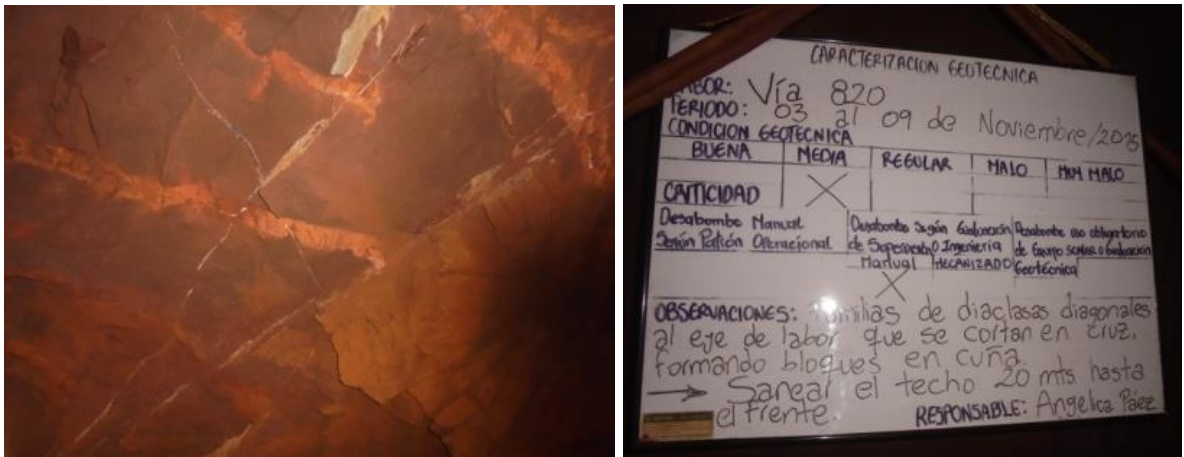 CARACTERIZACION GEOTECNICA
LABOR: Vía 820
PERIODO: 03 al 09 de Noviembre/2025
CONDICION GEOTECNICA
BUENA MEDIA REGULAR MALO MUY MALO
CRITICIDAD X
Desabombe Manual
Según Patrón Operacional
Desabombe Según Evaluación
de Supervisión O Ingeniería
Manual MECANIZADO
X
Desabombe uso obligatorio
de Equipo SCALER o Evaluación
Geotécnica
OBSERVACIONES: Familias de diaclasas diagonales
al eje de labor que se cortan en cruz.
formando bloques en cuña
→ Sanear el techo 20 mts. hasta
el frente
RESPONSABLE: Angelica Páez